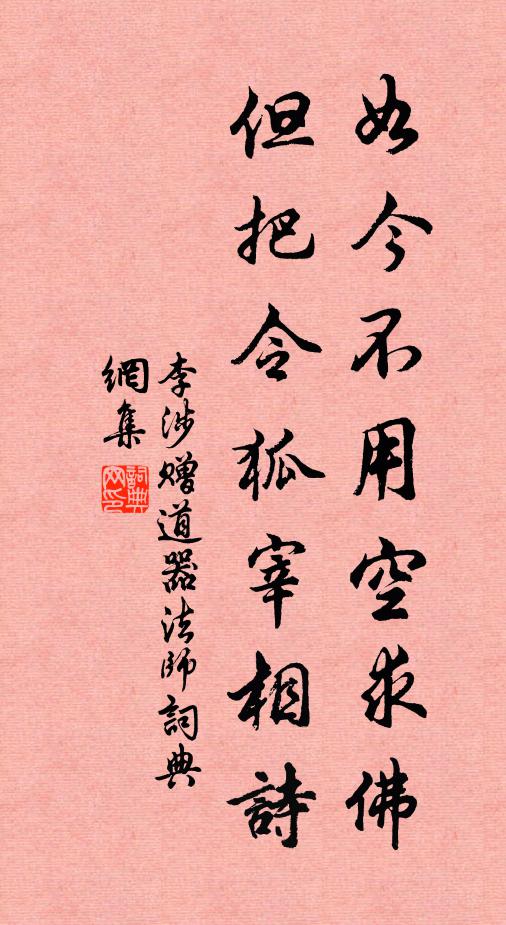 如今不用空求佛
但把令狐宰相詩
李涉赠道器法師詞典
網集
詞典網印